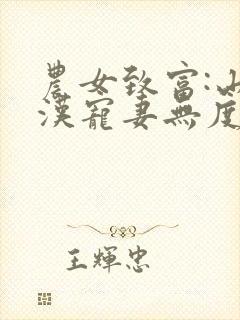 農女致富:山
漢寵妻無度
王輝忠